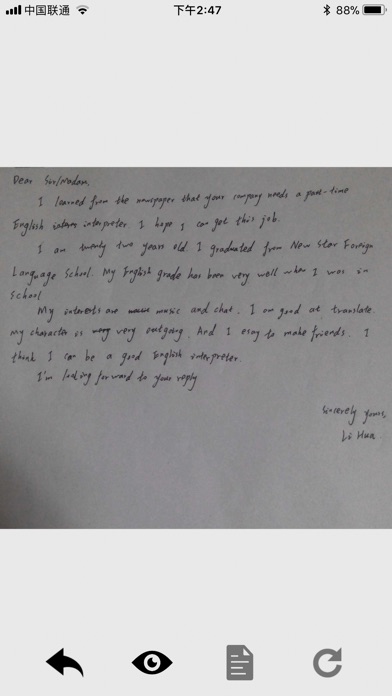 中国联通
下午2:47
88%
Dear Sir/Madam,
I learned from the newspaper that your company needs a part-time
English interpreter. I hope I can get this job.
I am twenty two years old. I graduated from New Star Foreign
Language School. My English grade has been very well when I was in
School
My interests are music and chat. I am good at translate.
my character is very outgoing. And I esay to make friends. I
think I can be a good English interpreter.
I'm looking forward to your reply
Sincerely yours,
Li Hua